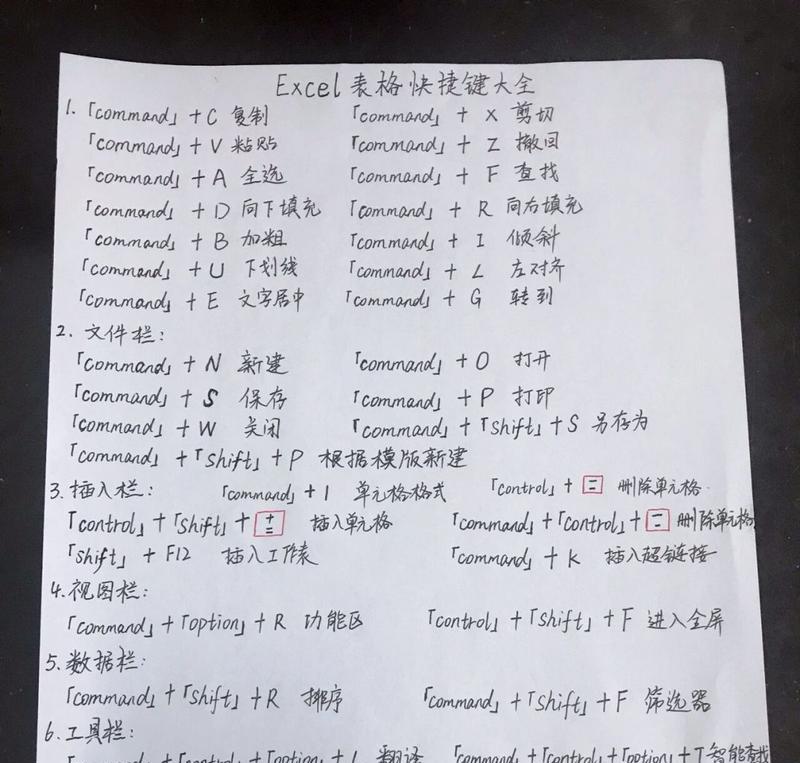 Excel表格快捷键大全
1.「command」+C 复制 「command」+X 剪切
「command」+V 粘贴 「command」+Z 撤回
「command」+A 全选 「command」+F 查找
「command」+D 向下填充 「command」+R 向右填充
「command」+B 加粗 「command」+I 倾斜
「command」+U 下划线 「command」+L 左对齐
「command」+E 文字居中 「command」+G 转到
2.文件栏:
「command」+N 新建 「command」+O 打开
「command」+S 保存 「command」+P 打印
「command」+W 关闭 「command」+「shift」+S 另存为
「command」+「shift」+P 根据模版新建
3.插入栏: 「command」+1 单元格格式 「control」+ 二 删除单元格
「control」+「shift」+ ± 插入单元格 「command」+「control」+ 二 删除单元格
「shift」+F12 插入工作表 「command」+K 插入超链接
4.视图栏:
「command」+「option」+R 功能区 「control」+「shift」+F 进入全屏
5.数据栏:
「command」+「shift」+R 排序 「command」+「shift」+F 筛选器
6.工具栏:
「command」+「control」+「option」+L 翻译 「command」+「control」+「option」+T 智能查找